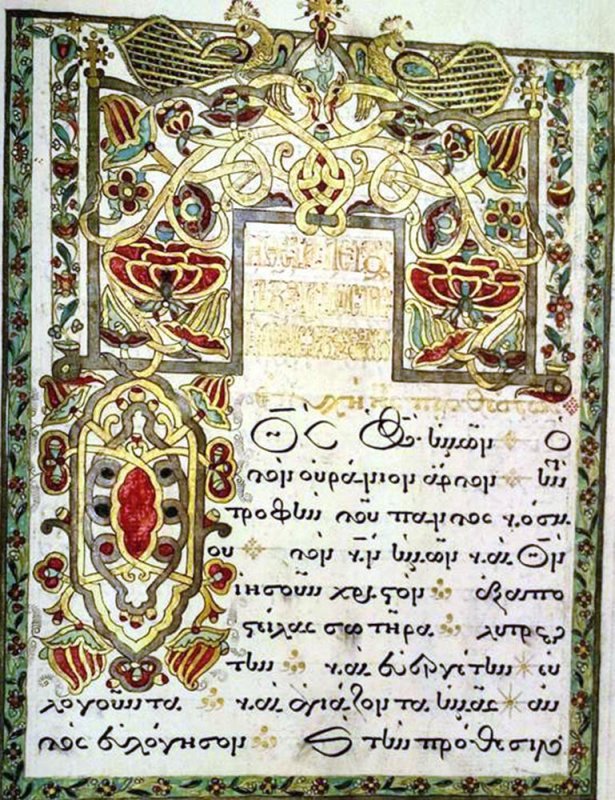 Ὁ Θ̅Ϲ ὁ Θ̅ς ἡμῶν ὁ
τὸν οὐράνιον ἄρτον τὴν
τροφὴν τοῦ παντὸς κόσμ
ου τὸν κ̅ν ἡμῶν καὶ Θ̅ν
ἰησοῦν χριστὸν ἐξαπο
στείλας σωτῆρα λυτρω
τὴν καὶ εὐεργέτην εὐ
λογοῦντα καὶ ἁγιάζοντα ἡμᾶς αὐ
τὸς εὐλόγησον τὴν πρόθεσιν